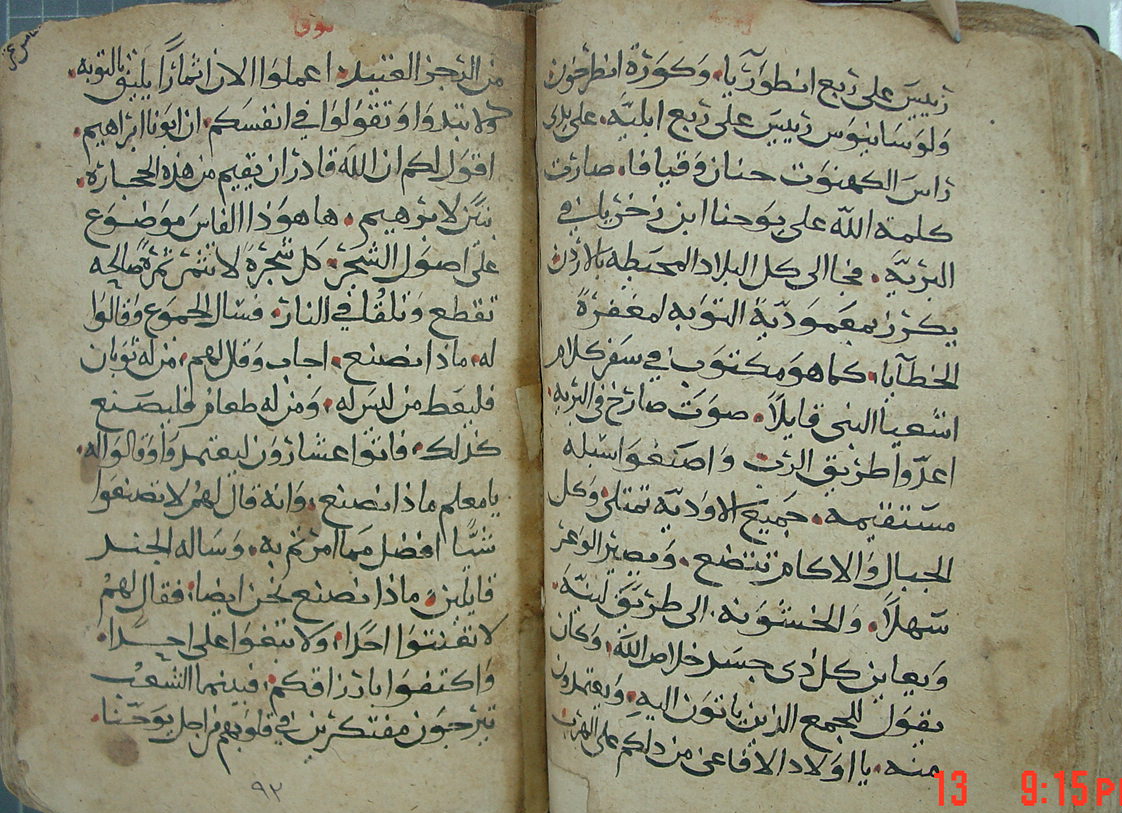 رييس على ربع انطوريا، وكورة انطرخون
ولوسانيوس رييس على ربع ابلية، على يدى
راس الكهنوت حنان وقيافا، صارت
كلمة الله على يوحنا ابن زخريا في
البريّة، فجا الى كل البلاد المحيطه بالاردن
يكرز بمعموديّة التوبه لمغفرة
الخطايا، كما هو مكتوب في سفر كلام
اشعيا النبى قايلاً، صوت صارخ في البريه،
اعدّوا طريق الرب واصنعوا سبله
مستقيمه، جميع الاوديّة تمتلى وكل
الجبال والاكام تتضع، ويصير الوعر
سهلاً، والخشونه الى طريق لينّة،
ويعاين كل ذى جسد خلاص الله، وكان
يقول للجمع الذين ياتون اليه، ويعتمدون
منه، يا اولاد الافاعى من دلكم على الهرب
لوقا
من الرجز العتيد، اعملوا الان اثماراً يليق بالتوبه،
ولا تبدوا وتقولوا في انفسكم، ان ابونا ابراهيم،
اقول لكم ان الله قادر ان يقيم من هذه الحجارة،
بنين لابرهيم، ها هوذا الفاس موضوع
على اصول الشجر، كل شجرة لا تثمر ثمرة صالحه
تقطع وتلقا في النار، فسال الجموع وقالوا
له، ماذا نصنع، اجاب وقال لهم، من له ثوبان
فليعط من ليس له، ومن له طعام فليصنع
كذلك، فاتوا عشارون ليعتمدوا وقالوا له،
يا معلم ماذا نصنع، وانه قال لهم لا تصنعوا
شيا افضل مما امرتم به، وساله الجند
قايلين، ماذا نصنع نحن ايضا، فقال لهم
لا تفتنوا احدا، ولا تبغوا على احد،
واكتفوا بارزاقكم، فبينما الشعب
يترجون مفتكرين في قلوبهم من اجل يوحنا،
٩٢
13 9:15 P